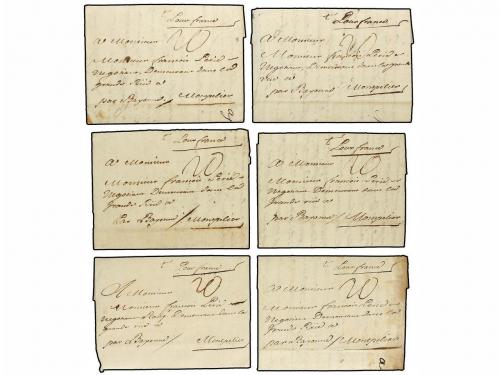 Pour france
20
A Monsieur
Monsieur francois Perié
Negotiant Demeurant dans la
grande Rüe a
par Bayonne / Montpelier
Pour france
20
A Monsieur
Monsieur francois Perié
Negotiant Demeurant dans la
rüe a
par Bayonne / Montpelier
Pour france
20
A Monsieur
Monsieur francois Perié
Negotiant Demeurant dans la
Grande Rüe a
Par Bayonne / Montpelier
Pour france
20
A Monsieur
Monsieur francois Perié
Negotiant Demeurant dans la
Grande Rüe a
par Bayonne / Montpelier
Pour france
20
A Monsieur
Monsieur francois Perié
Negotiant Demeurant dans la
grande rüe a
par Bayonne / Montpelier
Pour france
20
A Monsieur
Monsieur francois Perié
Negotiant Demeurant dans la
Grande Rüe a
par Bayonne / Montpelier